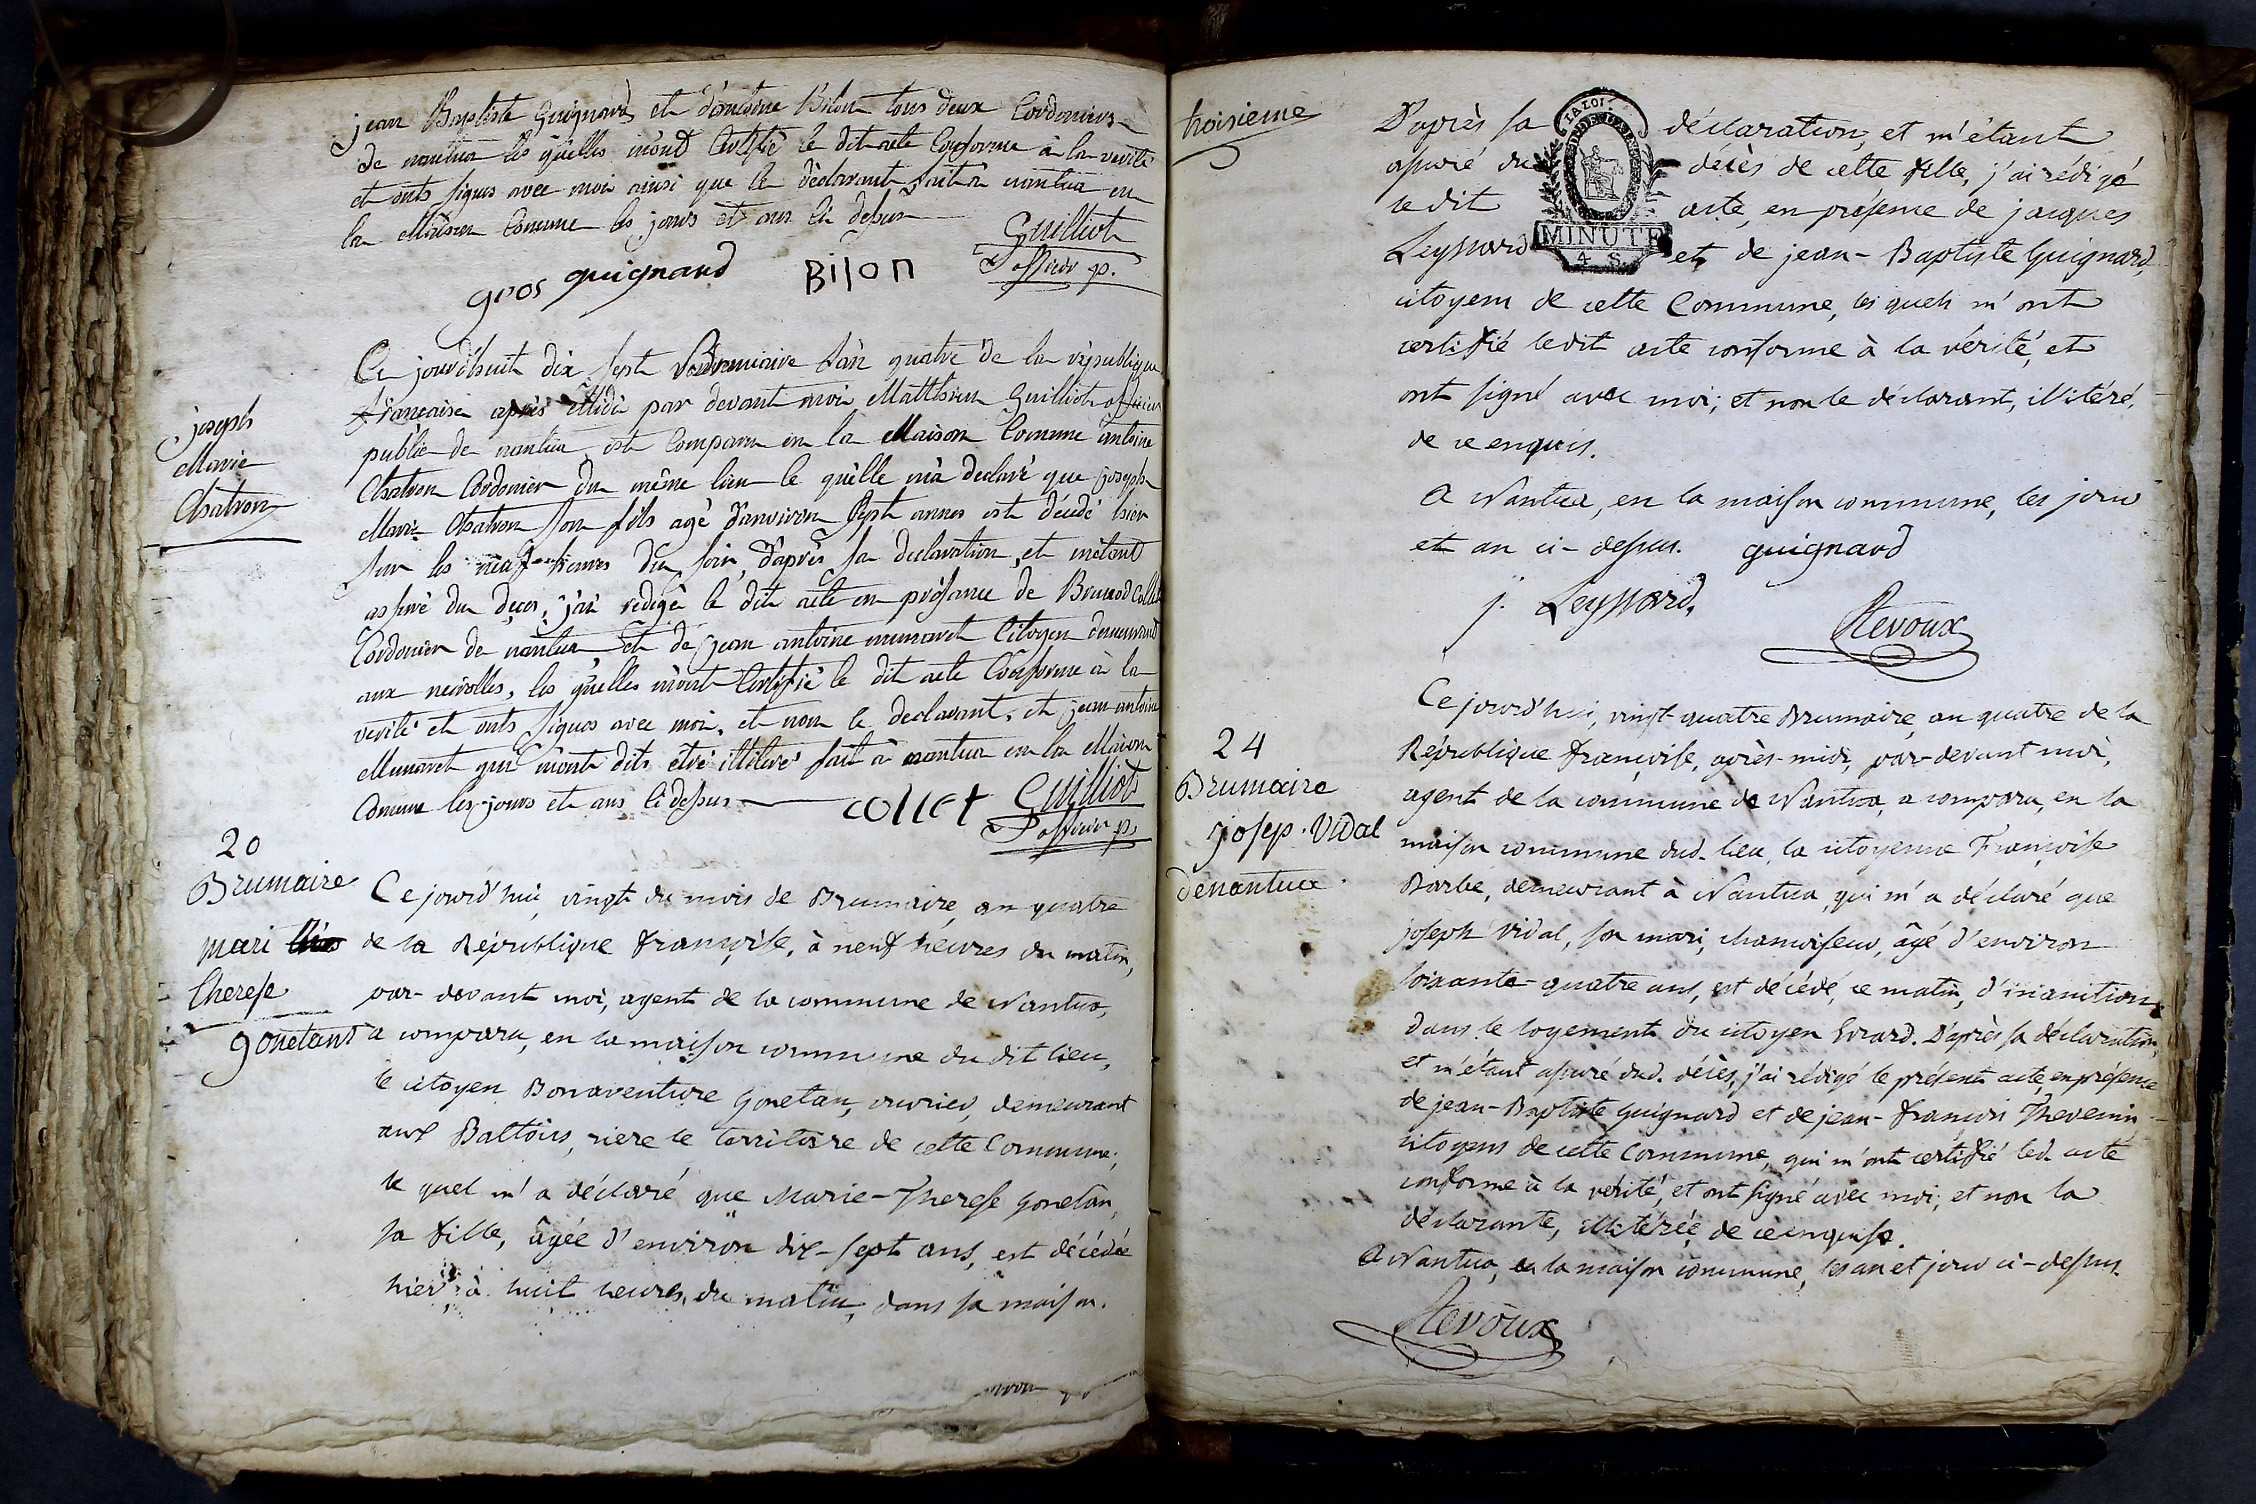 jean Baptiste Guignard et d'antoine Bilon tous deux Cordoniers
de nantua les quelles m'ont Certifié le dit acte Conforme à la verité
et onts signes avec moi ainsi que le déclarant, fait à nantua en
la Maison Comune les jours et an ci dessus
Guilliot
officier p.
gros guignard Bilon
joseph
Marie
Chatron
Ce jourd'huit dix sept Brumaire l'an quatre de la république
française après Midi par devant moi Matthieu Guilliot officier
public de nantua est Comparu en la Maison Comune antoine
Chatron Cordonier du même lieu le quelle m'a declaré que joseph
Marie Chatron son fils agé d'anviron sept annes est décédé hier
sur les neuf heures du soir, d'après sa declaration, et m'étant
assuré du deces, j'ai redigé le dit acte en présance de Brunod Collet
Cordonier de nantua et de jean antoine munaret Citoyen demeurant
aux neirolles, les quelles m'ont Certifié le dit acte Conforme à la
verité et onts signes avec moi, et non le declarant, et jean antoine
Munaret qui m'ont dits étre illiteré fait à nantua en la Maison
Comune les jours et ans ci dessus
collet Guilliot
officier p.
20
Brumaire
mari
therese
gonetant
Ce jourd'hui, vingt du mois de Brumaire, an quatre
de la République françoise, à neuf heures du matin,
par-devant moi, agent de la commune de Nantua,
a comparu, en la maison commune du dit lieu,
le citoyen Bonaventure gonetan, ouvrier, demeurant
aux Battoirs, riere le territoire de cette Commune,
le quel m'a déclaré que Marie-Therese gonetan,
sa fille, âgée d'environ dix-sept ans, est décédée
hier, à huit heures du matin, dans sa maison.
troisieme
D'après sa déclaration, et m'étant
assuré du décès de cette fille, j'ai rédigé
le dit acte, en présence de jacques
Leyssard et de jean-Baptiste Guignard,
LA LOI
MINUTE
4 S
citoyens de cette Commune, les quels m'ont
certifié ledit acte conforme à la vérité, et
ont signé avec moi; et non le déclarant, illitéré,
de ce enquis.
A Nantua, en la maison commune, les jour
et an ci-dessus. guignard
j. Leyssard,
Revoux
24
Brumaire
josep. Vidal
denantua.
Ce jourd'hui, vingt-quatre Brumaire, an quatre de la
République françoise, après-midi, par-devant moi,
agent de la commune de Nantua, a comparu, en la
maison commune dud. lieu, la citoyenne Françoise
Barbe, demeurant à Nantua, qui m'a déclaré que
joseph Vidal, son mari, chamoiseur, âgé d'environ
soixante-quatre ans, est décédé, ce matin, d'inanition,
dans le logement du citoyen Evrard. D'après sa déclaration,
et m'étant assuré dud. décès, j'ai rédigé le présent acte, en présence
de jean-Baptiste Guignard et de jean-françois Thevenin,
citoyens de cette Commune, qui m'ont certifié led. acte
conforme à la vérité, et ont signé avec moi; et non la
déclarante, illitérée, de ce enquise.
A Nantua, en la maison commune, les an et jour ci-dessus.
Revoux